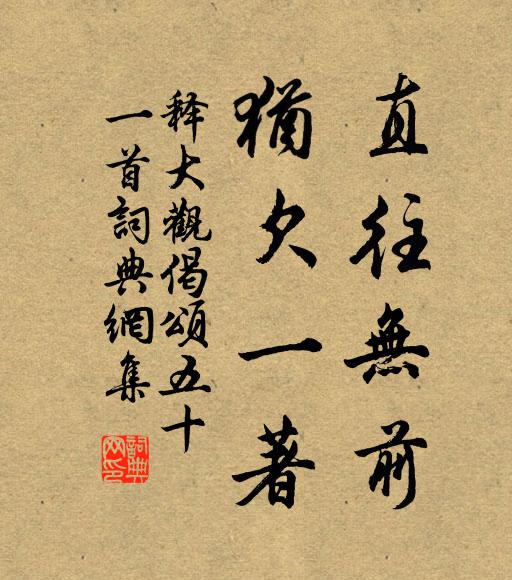 直往無前
猶欠一著
释大觀偈頌五十
一首詞典網集
詞典网印